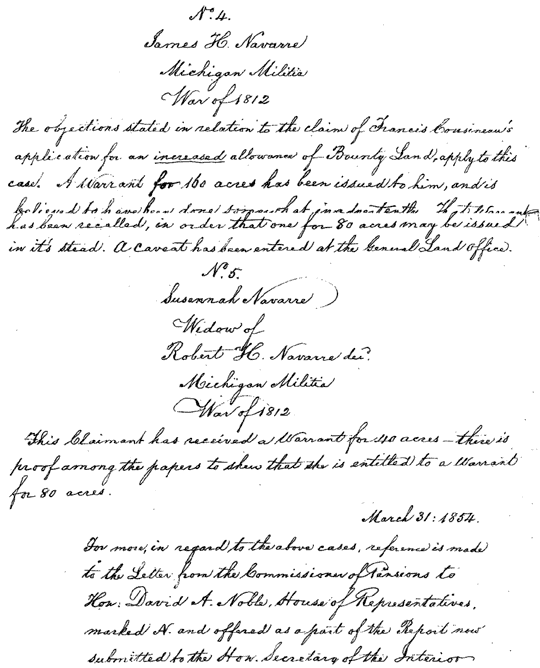 No. 4.
James H. Navarre
Michigan Militia
War of 1812
The objections stated in relation to the claim of Francis Cousineau's
application for an increased allowance of Bounty Land, apply to this
case. A Warrant for 160 acres has been issued to him, and is
believed to have been done somewhat inadvertently. That Warrant
has been recalled, in order that one for 80 acres may be issued
in it's stead. A caveat has been entered at the General Land Office.
No. 5.
Susennah Navarre
Widow of
Robert H. Navarre decd.
Michigan Militia
War of 1812
This Claimant has received a Warrant for 40 acres – there is
proof among the papers to shew that she is entitled to a Warrant
for 80 acres.
March 31: 1854.
For more, in regard to the above cases, reference is made
to the Letter from the Commissioner of Pensions to
Hon: David A. Noble, House of Representatives,
marked N. and offered as a part of the Report now
submitted to the Hon. Secretary of the Interior